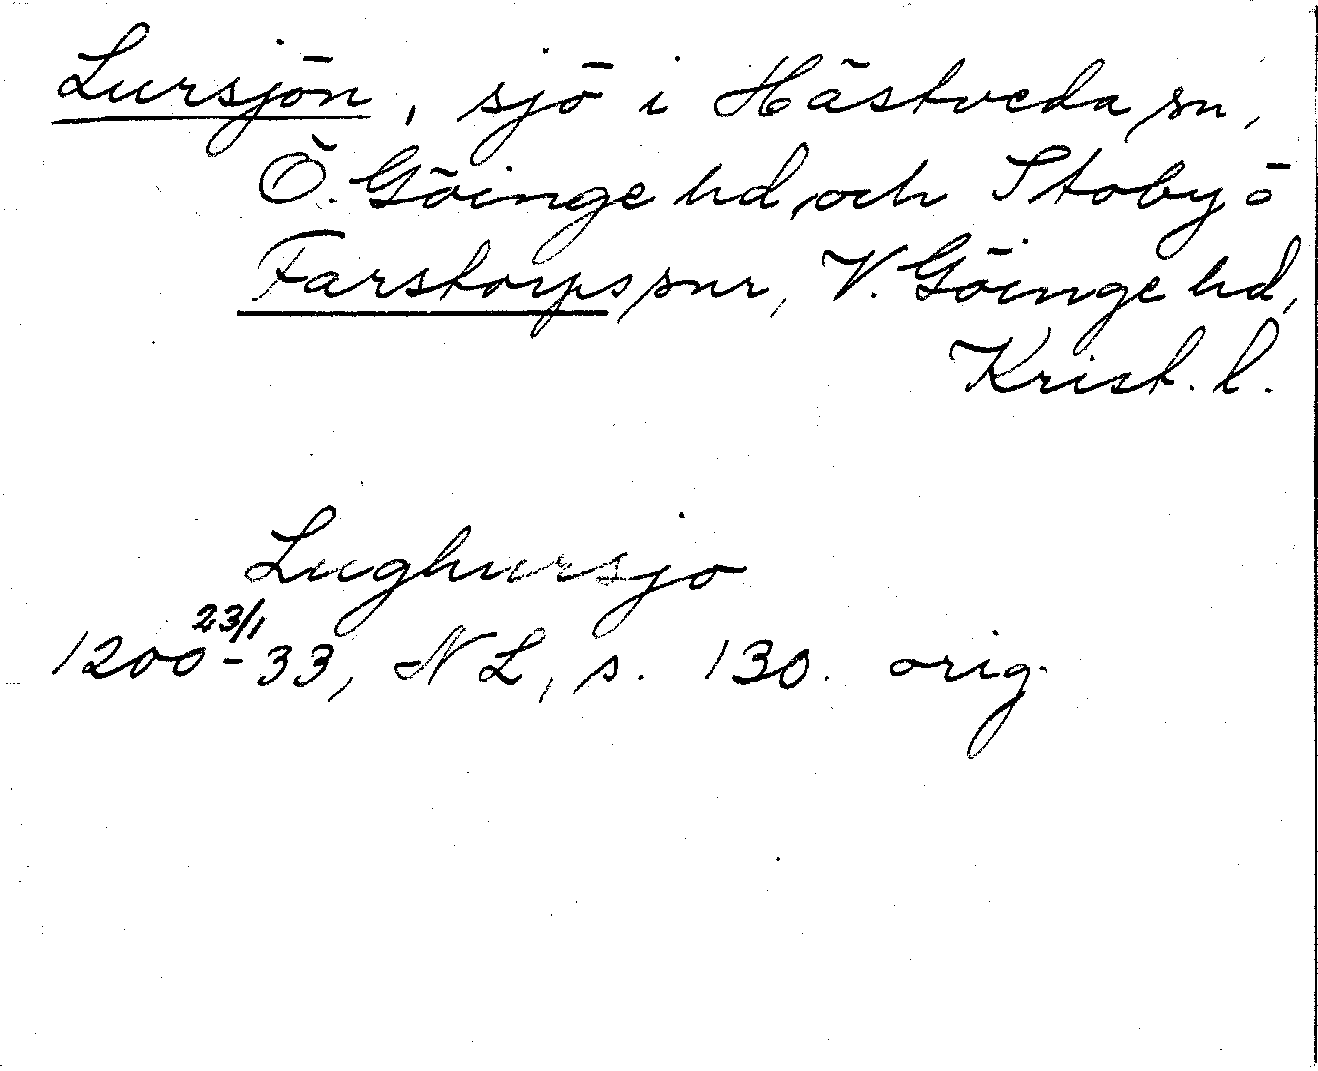 Lursjön, sjö i Hästveda sn,
Ö. Göinge hd, och Stoby o
Farstorps snr, V. Göinge hd,
Krist. l.
Lughursjo
23/1
1200-33, NL, s. 130. orig.